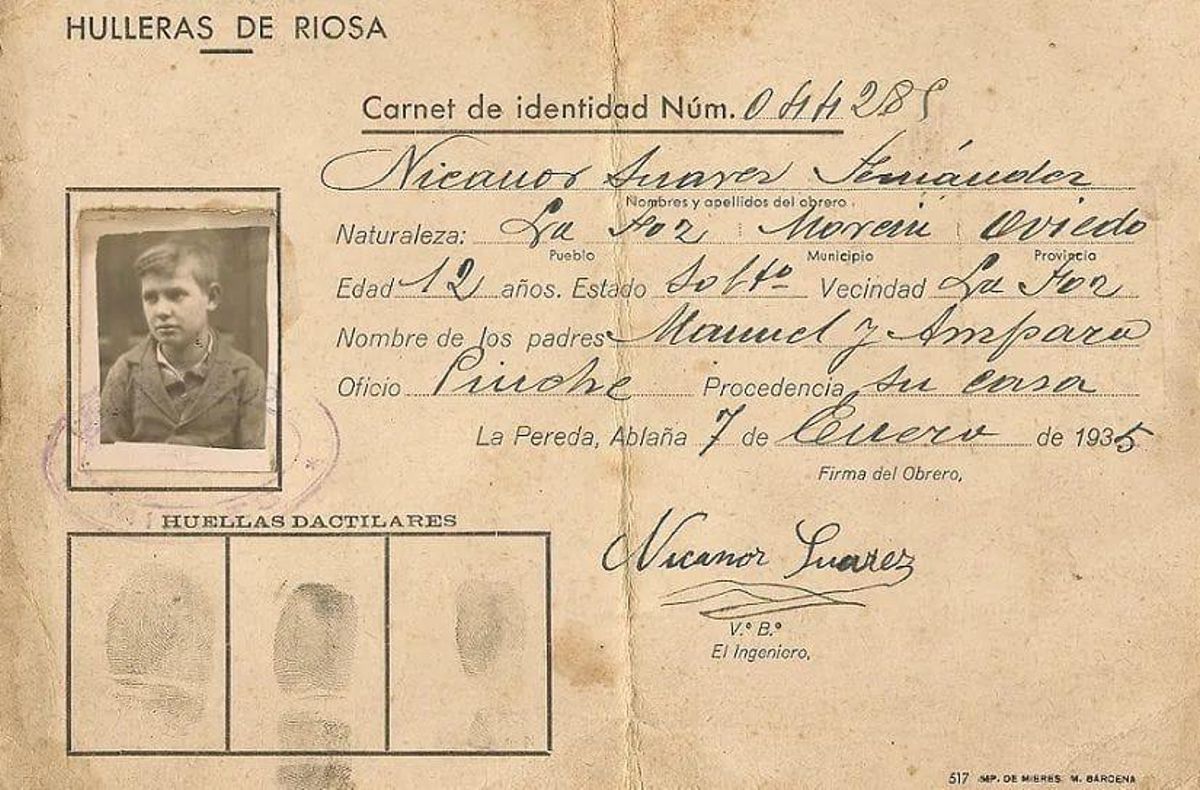 HULLERAS DE RIOSA
Carnet de identidad Núm. 044285
Nicanor Suarez Fernández
Nombres y apellidos del obrero
Naturaleza: La Foz Morcín Oviedo
Pueblo Municipio Provincia
Edad 12 años. Estado Solto Vecindad La Foz
Nombre de los padres Manuel y Amparo
Oficio Pinche Procedencia su casa
La Pereda, Ablaña 7 de Enero de 1935
Firma del Obrero,
HUELLAS DACTILARES
Nicanor Suarez
V.º B.º
El Ingeniero,
517 IMP. DE MIERES M. BÁRCENA